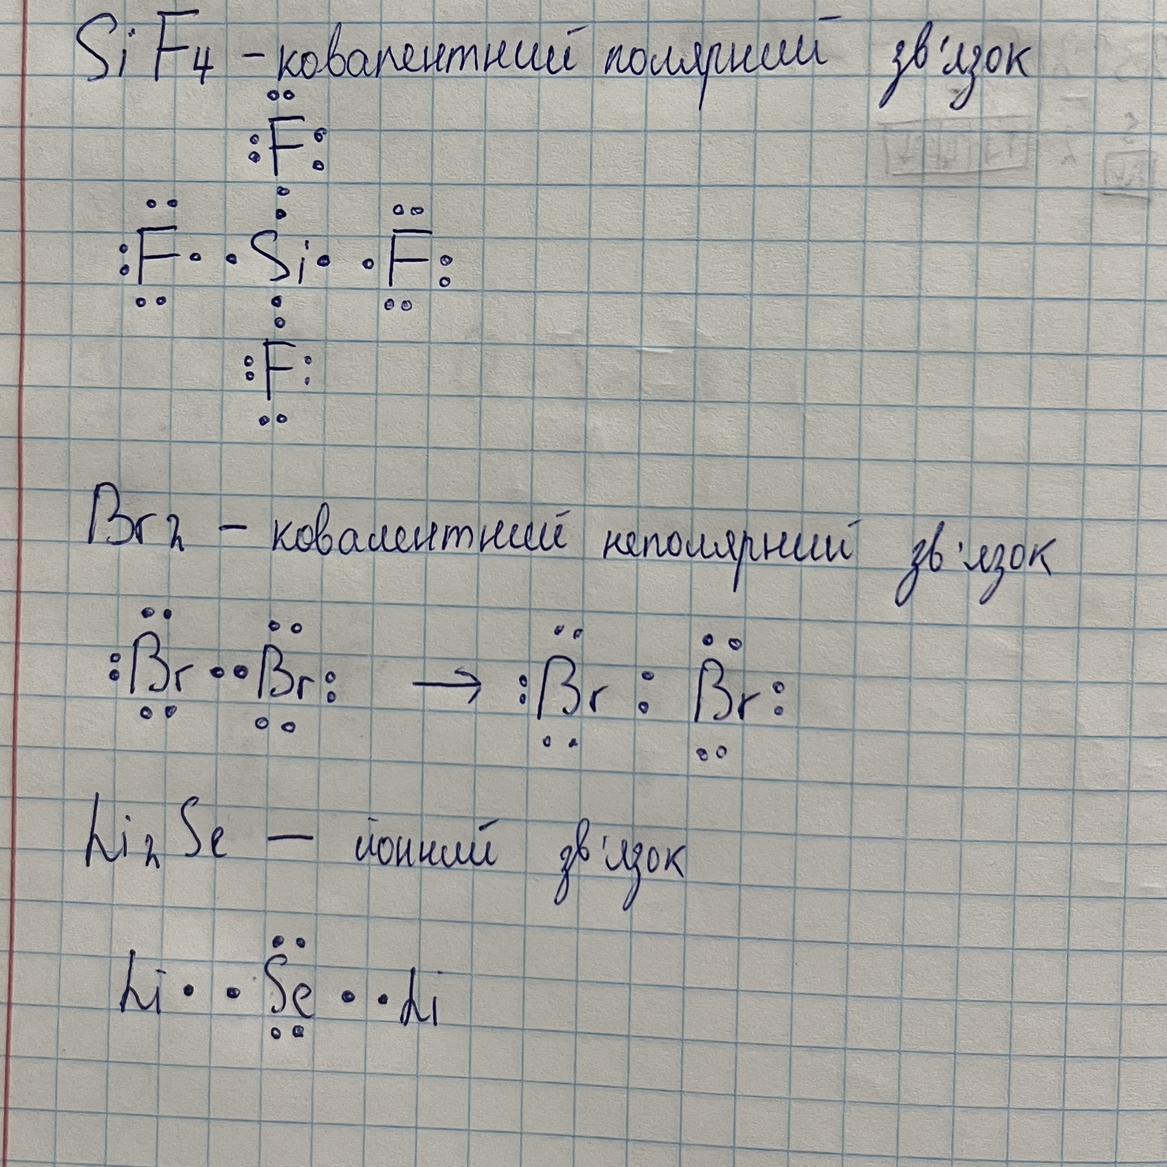 SiF4 - ковалентний полярний зв'язок
F
F Si F
F
Br2 - ковалентний неполярний зв'язок
:Br··Br: → :Br:Br:
Li2Se - йонний зв'язок
Li· ·Se· ·Li